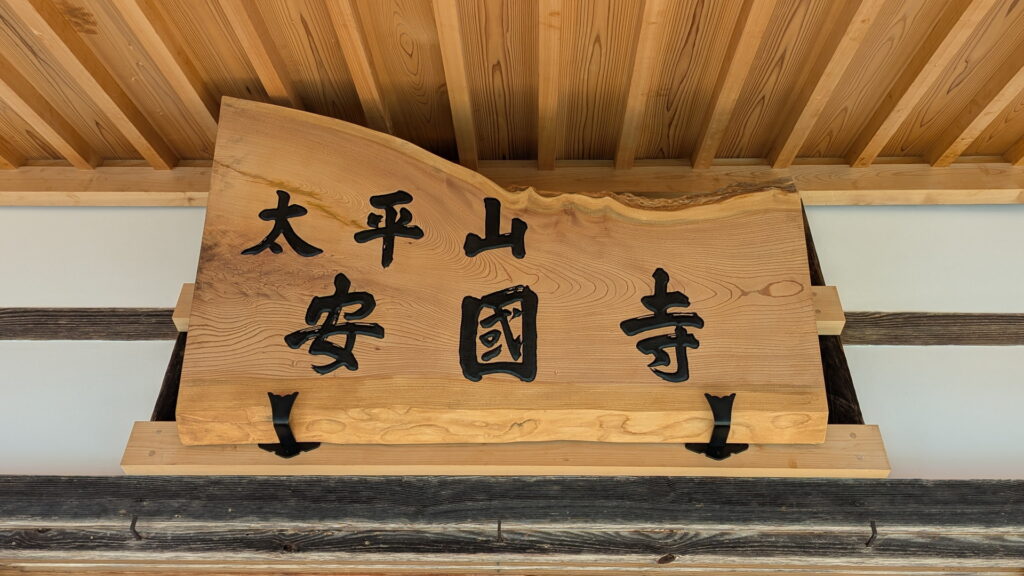 太平山
安國寺